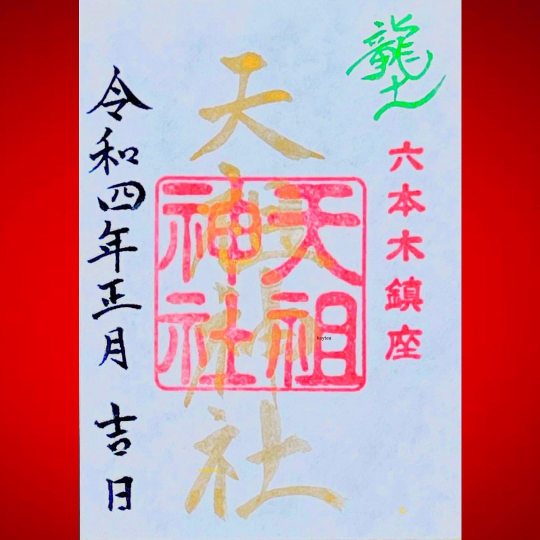 龍土
六本木鎮座
天祖神社
天祖
神社
令和四年正月 吉日